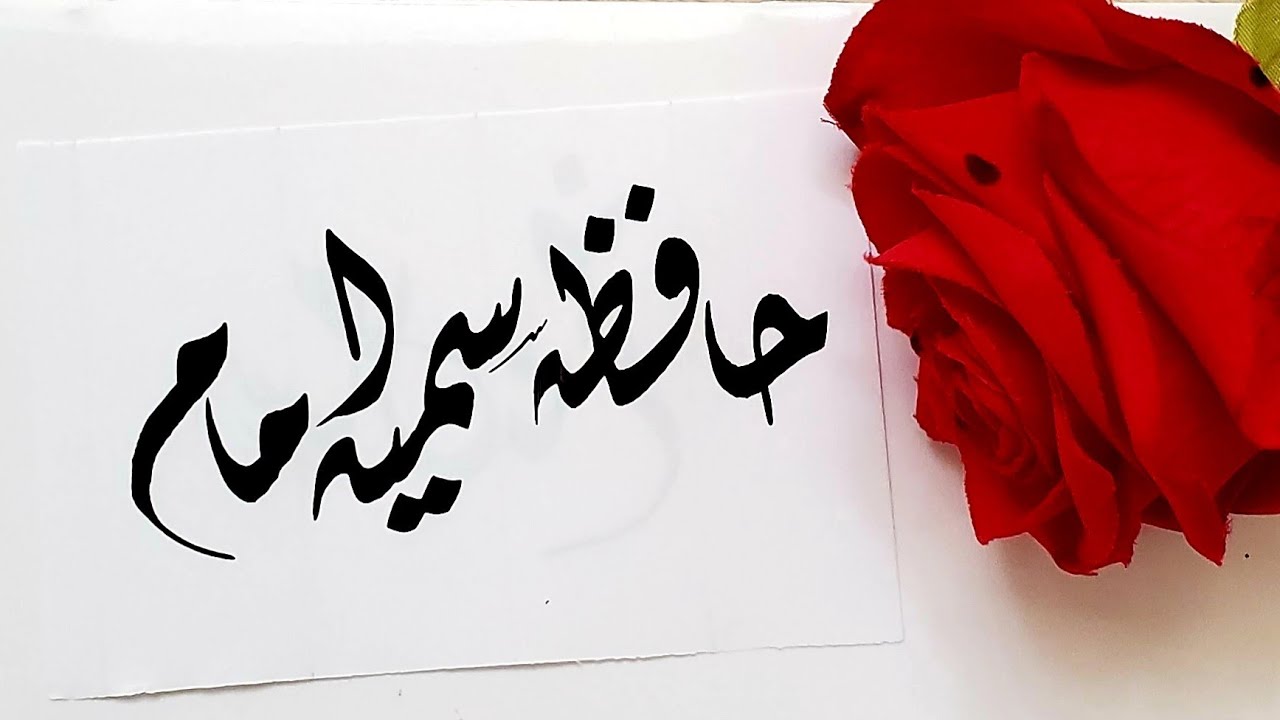 حافظہ سمیہ امام